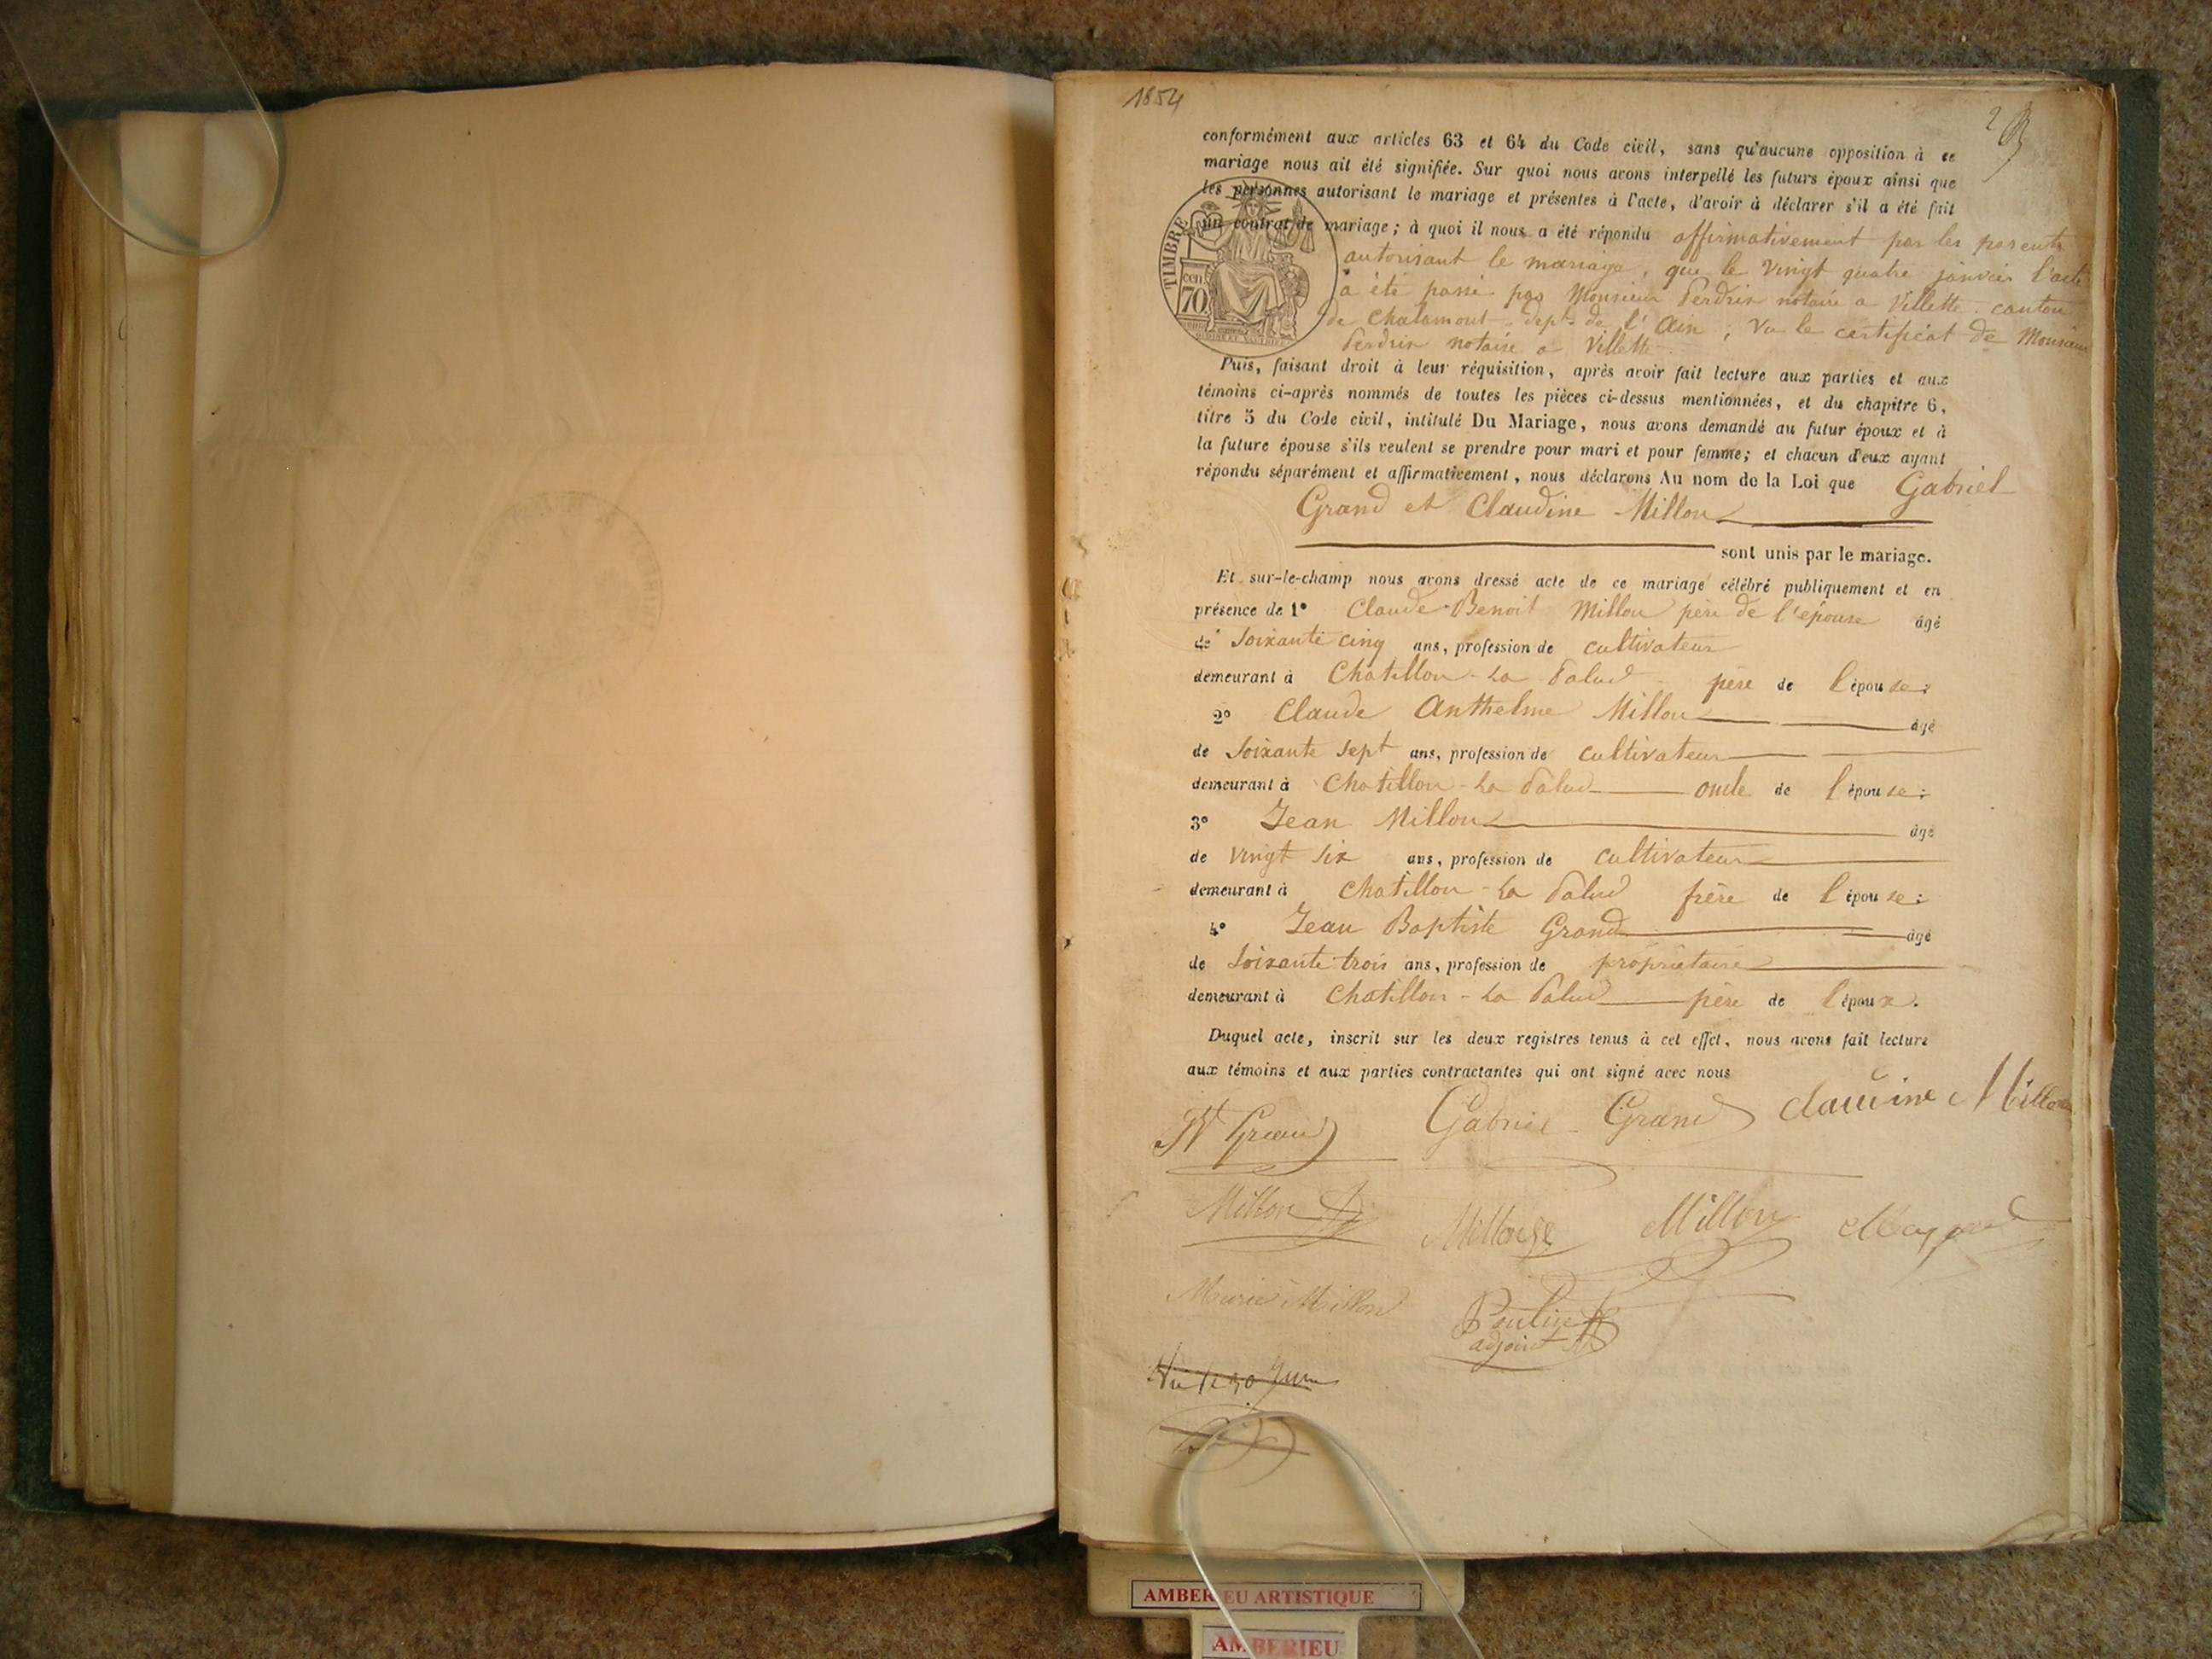 1854
2
conformément aux articles 63 et 64 du Code civil, sans qu'aucune opposition à ce
mariage nous ait été signifiée. Sur quoi nous avons interpellé les futurs époux ainsi que
les personnes autorisant le mariage et présentes à l'acte, d'avoir à déclarer s'il a été fait
un contrat de mariage; à quoi il nous a été répondu affirmativement par les parents
autorisant le mariage, que le vingt quatre janvier l'acte
a été passé par Monsieur Perdrix notaire a Villette canton
de Chalamont dept de l'Ain; Vu le certificat de Monsieur
Perdrix notaire a Villette
TIMBRE
cen
70
Puis, faisant droit à leur réquisition, après avoir fait lecture aux parties et aux
témoins ci-après nommés de toutes les pièces ci-dessus mentionnées, et du chapitre 6,
titre 5 du Code civil, intitulé Du Mariage, nous avons demandé au futur époux et à
la future épouse s'ils veulent se prendre pour mari et pour femme; et chacun d'eux ayant
répondu séparément et affirmativement, nous déclarons Au nom de la Loi que Gabriel
Grand et Claudine Millon
sont unis par le mariage.
Et sur-le-champ nous avons dressé acte de ce mariage célébré publiquement et en
présence de 1° Claude Benoit Millon père de l'épouse âgé
de Soixante cinq ans, profession de cultivateur
demeurant à Chatillon-La Palud père de l'épouse;
2° Claude Anthelme Millon âgé
de Soixante sept ans, profession de cultivateur
demeurant à Chatillon-La Palud oncle de l'épouse;
3° Jean Millon âgé
de vingt six ans, profession de cultivateur
demeurant à Chatillon-La Palud frère de l'épouse;
4° Jean Baptiste Grand âgé
de Soixante trois ans, profession de propriétaire
demeurant à Chatillon-La Palud père de l'époux.
Duquel acte, inscrit sur les deux registres tenus à cet effet, nous avons fait lecture
aux témoins et aux parties contractantes qui ont signé avec nous
Grand Gabriel Grand Claudine Millon
Millon Millon
Marie Millon
adjoint
Vu le 30 Juin
AMBERIEU ARTISTIQUE
AMBERIEU